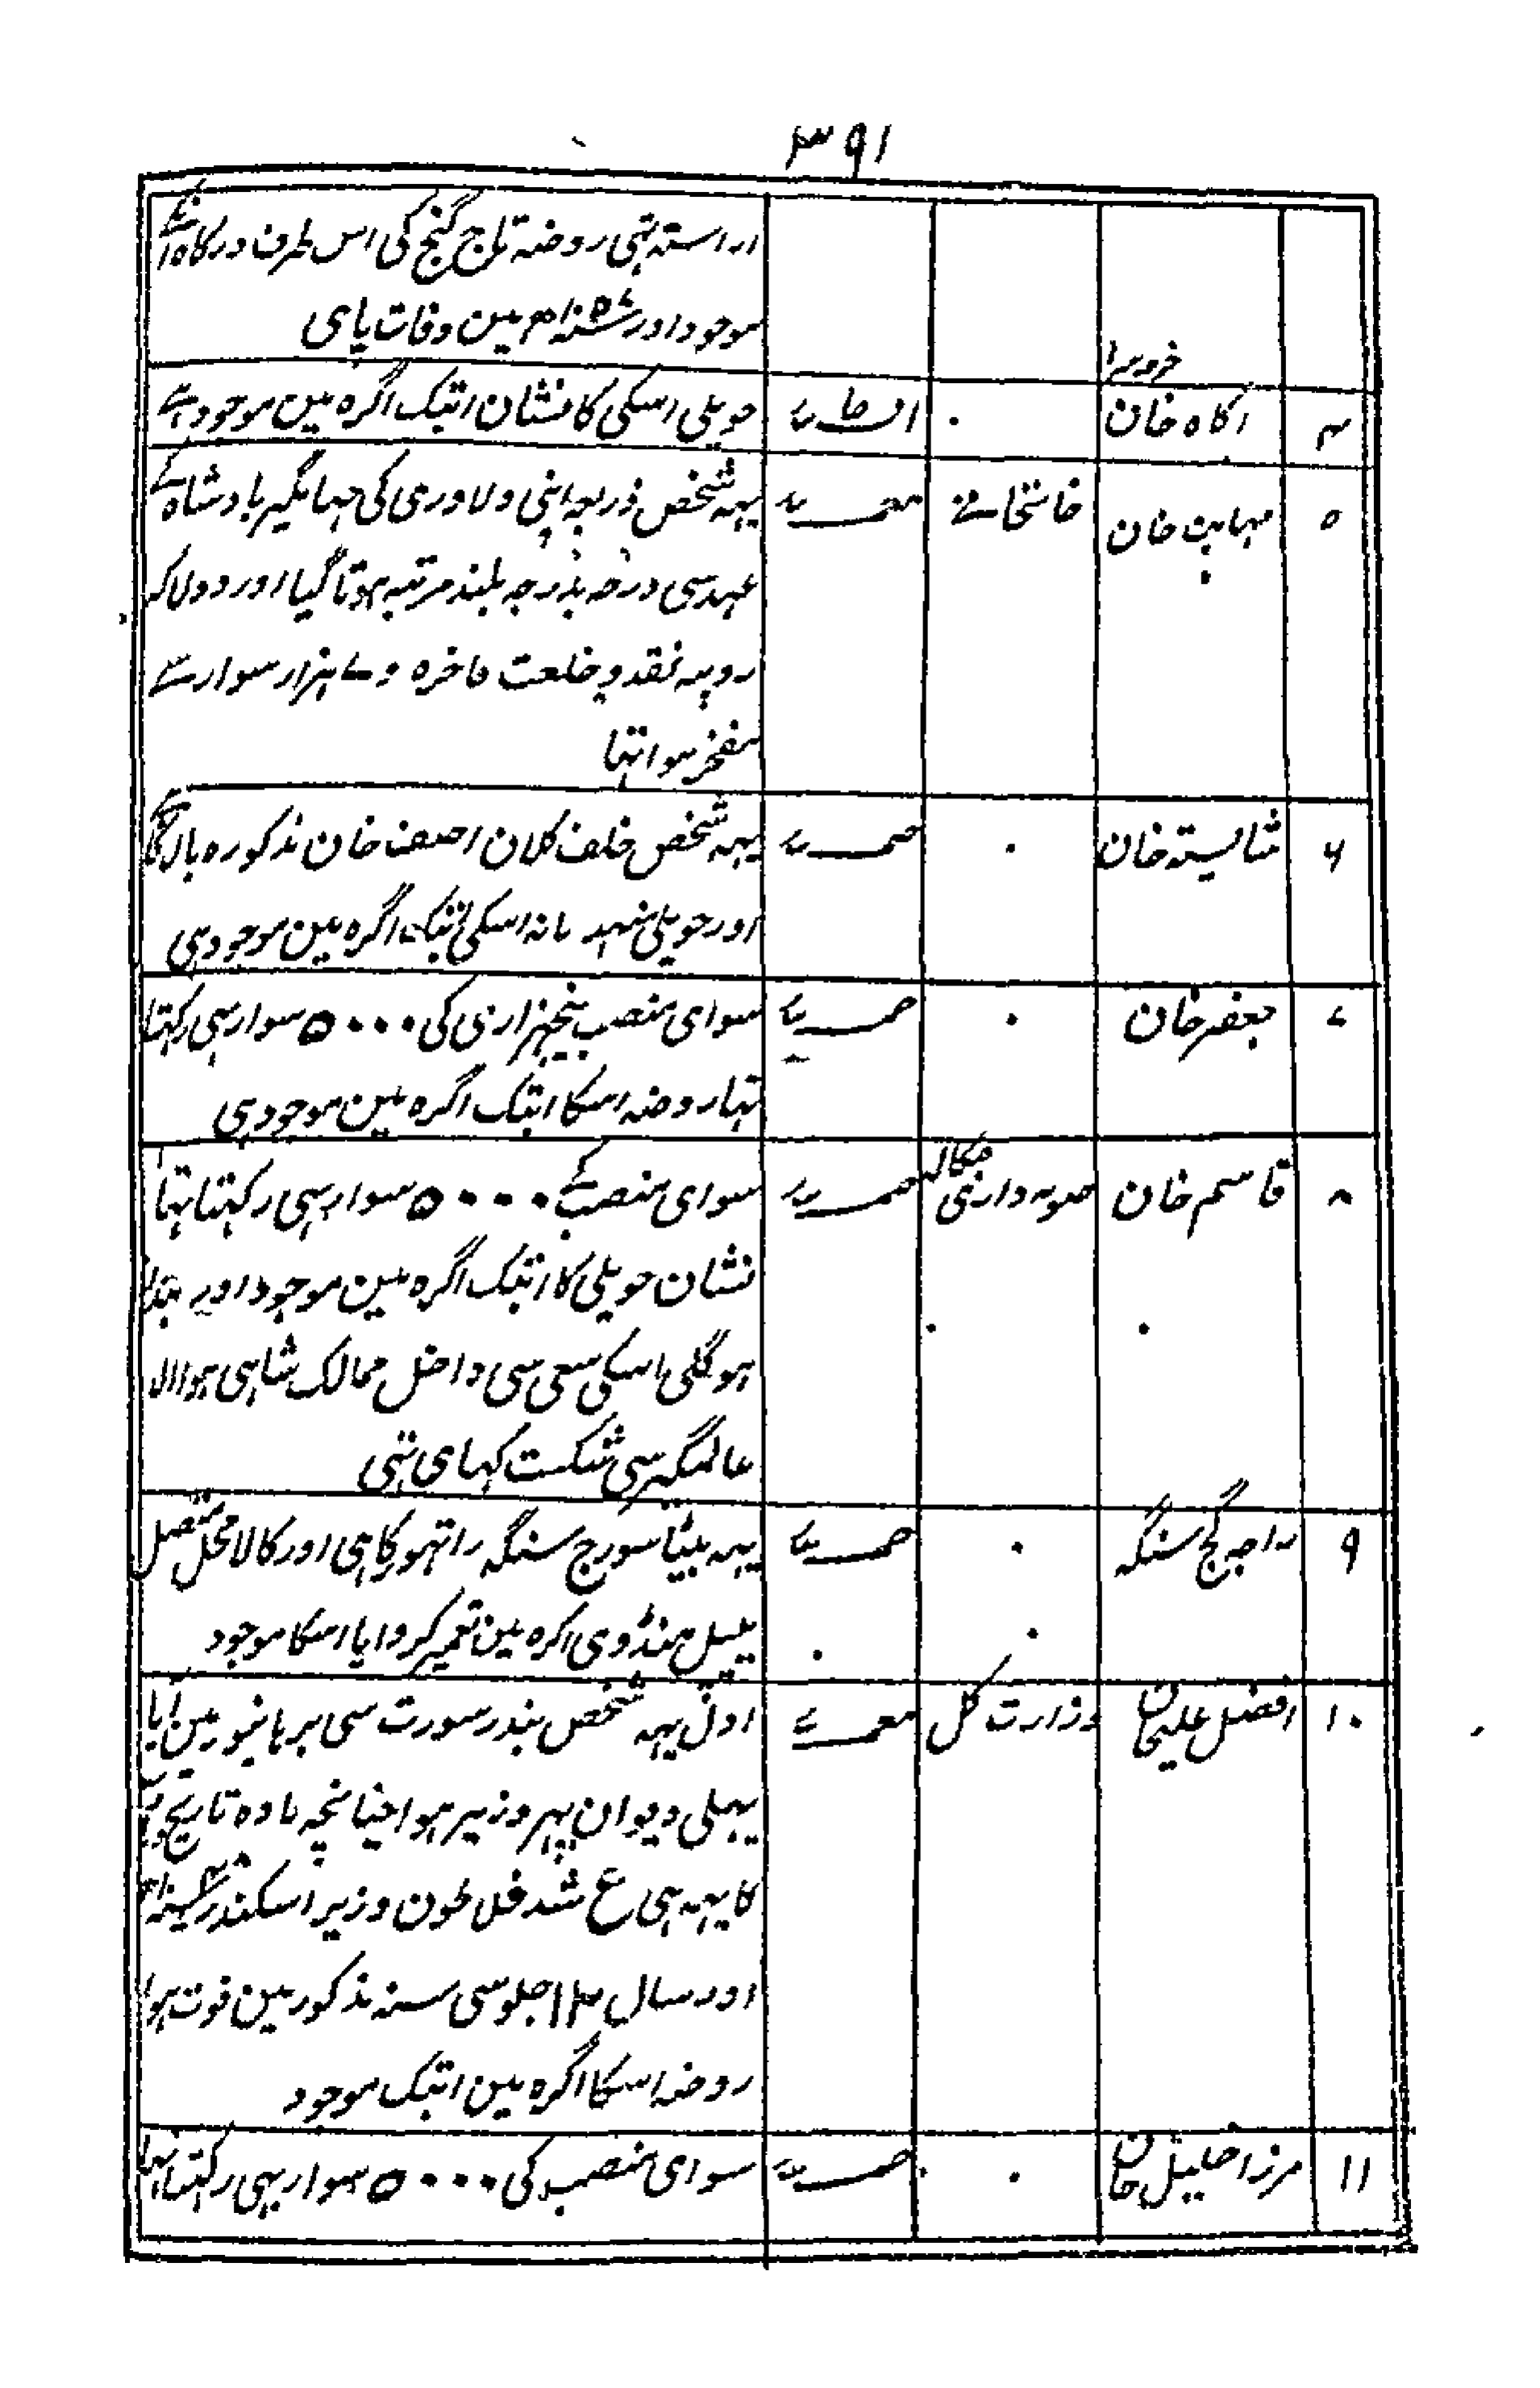 ۳۹۱
اراستہ تہی روضہ تاج گنج کی اس طرف درکاہ
موجود اور مین وفات پای
۴ اکاہ خان ۰ حویلی اسکی کا نشان ابتک اگرہ مین موجود ہے
۵ مہابت خان خانخانے یہہ شخص ذریعہ اپنی دلاوری کی جہانگیر بادشاہ کے
عہد سی درجہ بدرجہ بلند مرتبہ ہوتا گیا اور دو لاکہ
روپیہ نقد و خلعت فاخرہ و ۷ ہزار سوار سے
مفخر ہوا تہا
۶ شایستہ خان ۰ یہہ شخص خلف کلان اصف خان مذکورہ بالا کا ہے
اور حویلی اسکی ابتک اگرہ مین موجود ہی
۷ جعفر خان ۰ سوای منصب پنجہزاری کی ۵۰۰۰ سوار بہی رکہتا
تہا روضہ اسکا ابتک اگرہ مین موجود ہی
۸ قاسم خان صوبہ داری بنگالہ سوای منصب کے ۵۰۰۰ سوار بہی رکہتا تہا
نشان حویلی کا ابتک اگرہ مین موجود اور بندر
ہوگلی اسکی سعی سی داخل ممالک شاہی ہوا الا
عالمگیر سی شکست کہای تہی
۹ راجہ گج سنگہ ۰ یہہ بیٹا سورج سنگہ راتہور کا ہی اور کالا محل متصل
پیپل منڈوی اکرہ مین تعمیر کروایا اسکا موجود
۱۰ افضل علیخان وزارت کل اول یہہ شخص بندر سورت سی برہانپور مین ایا
پہلی دیوان پہر وزیر ہوا چنانچہ مادہ تاریخ
کا یہہ ہی ع شد فلاطون وزیر اسکندر
اور سال ۱۲ جلوسی سنہ مذکور مین فوت ہوا
روضہ اسکا اگرہ مین ابتک موجود
۱۱ مرزا خلیل خان ۰ سوای منصب کی ۵۰۰۰ سوار بہی رکہتا تہا